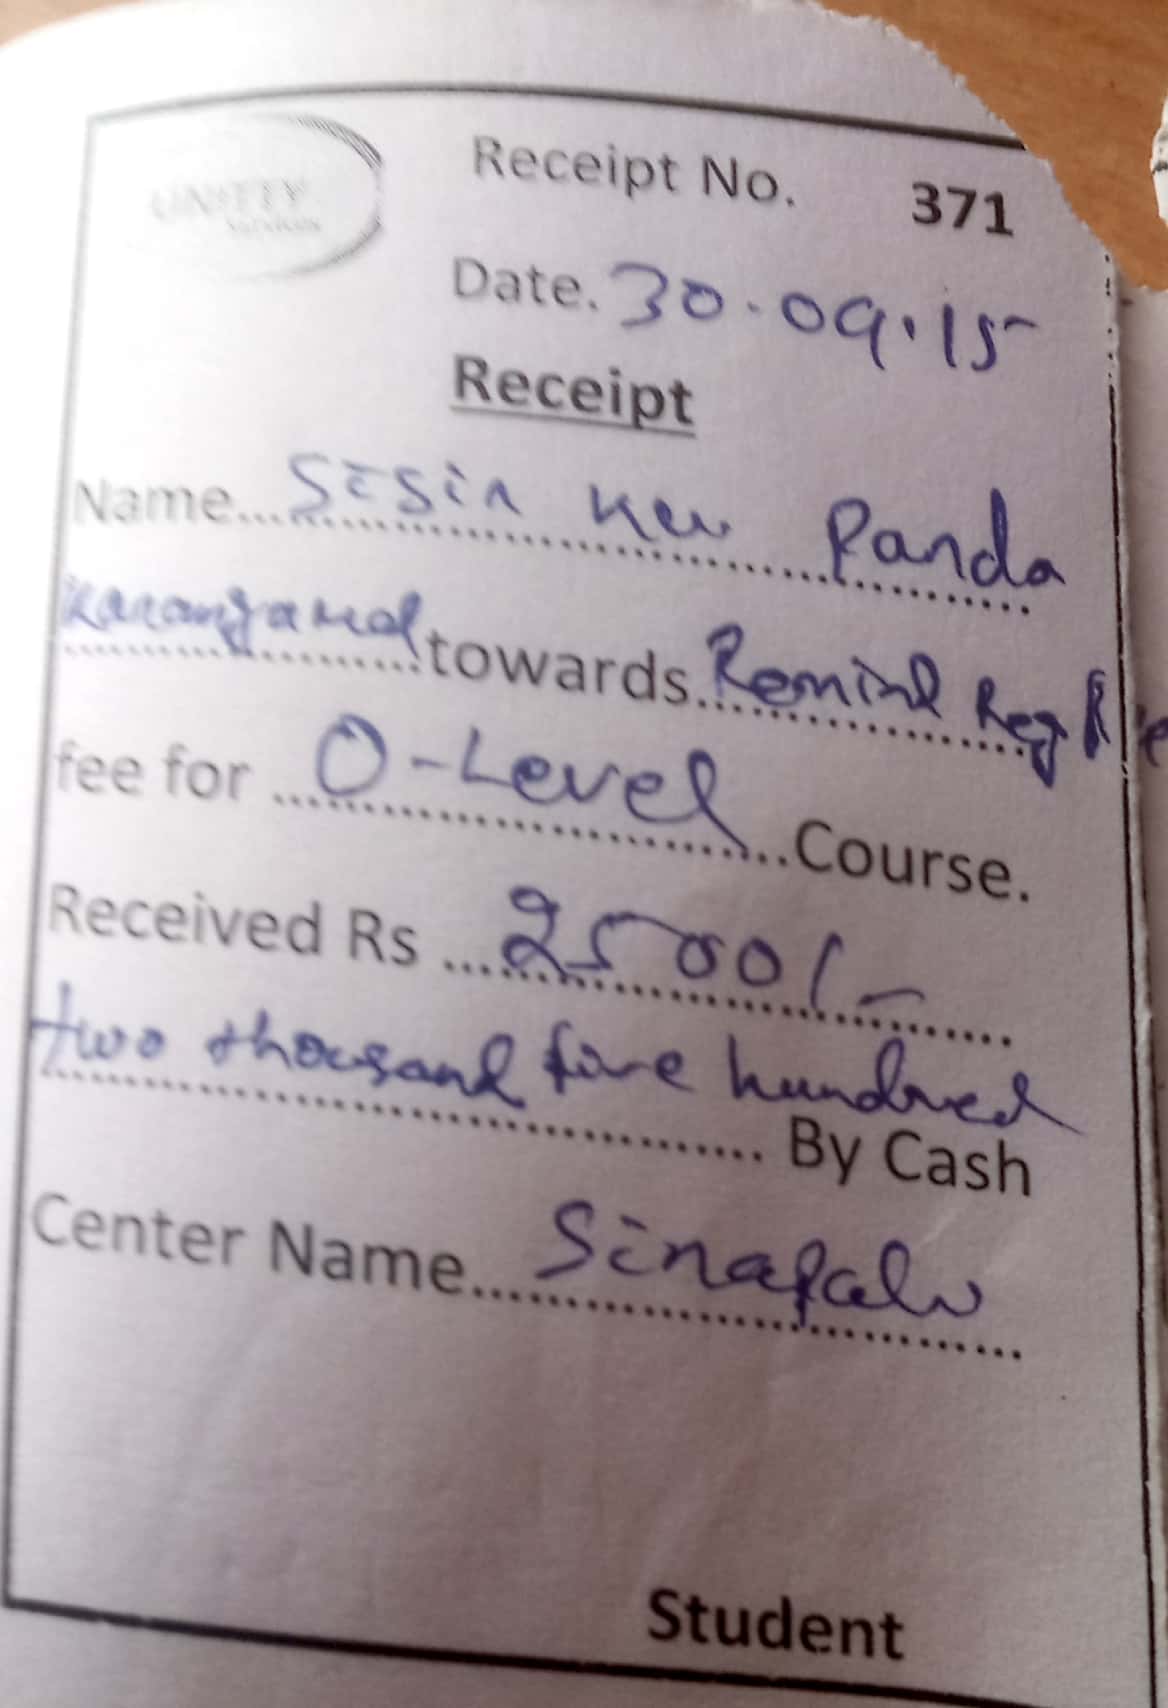 UNITTY
Receipt No. 371
Date. 30.09.15
Receipt
Name... Sisir Panda
towards. Reg
fee for ... O-Level ...Course.
Received Rs ... 2500/-
two thousand five hundred
By Cash
Center Name... Sinapalu
Student